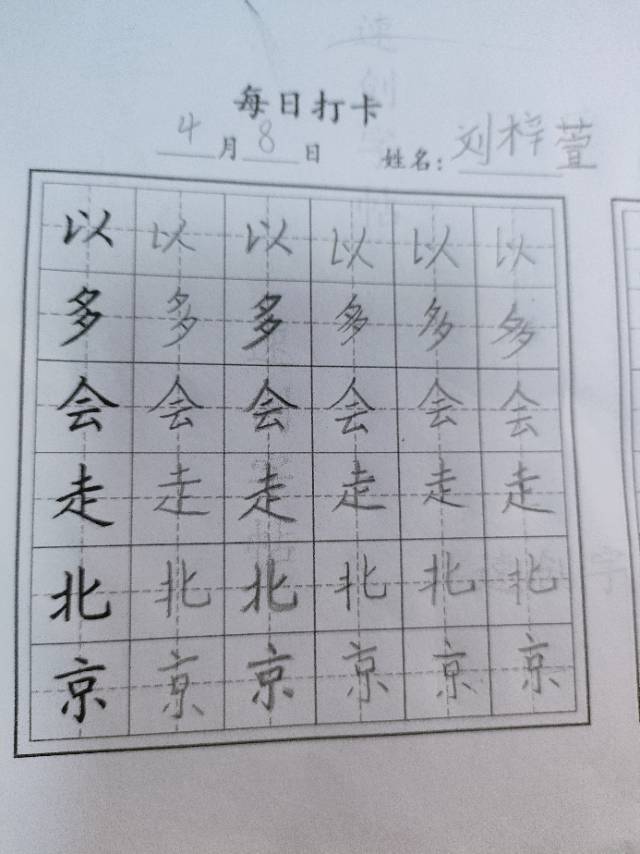 每日打卡
4月8日 姓名：刘梓萱
以以以以以以
多多多多多多
会会会会会会
走走走走走走
北北北北北北
京京京京京京